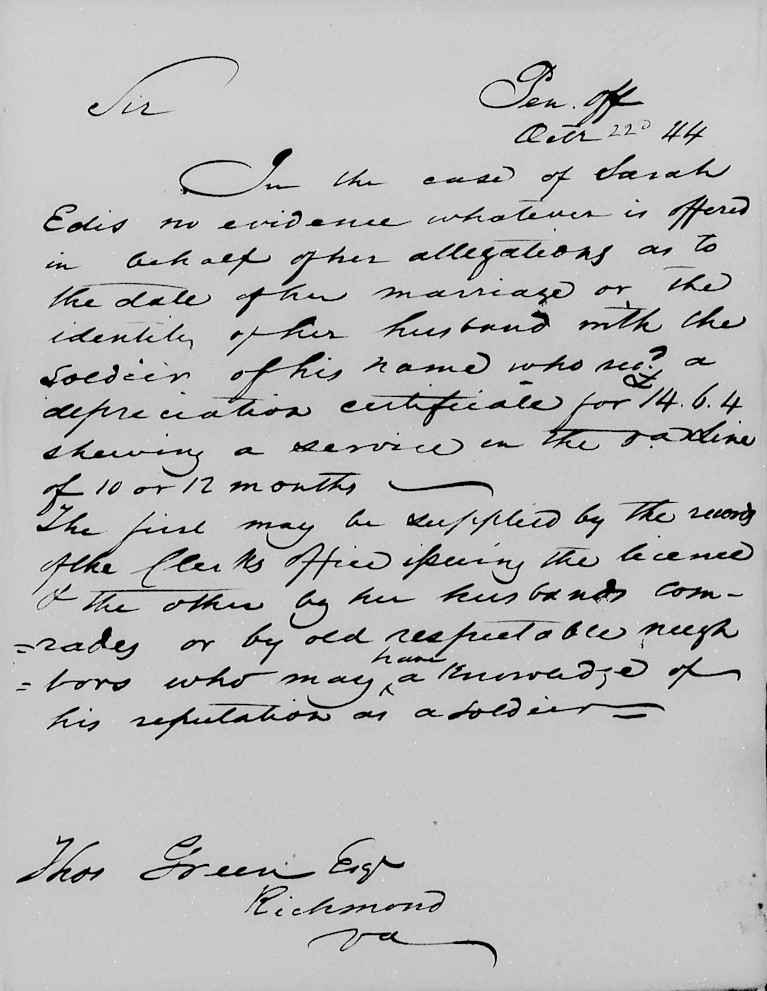 Pen. off
Sir
Octr 22d 44
In the case of Sarah
Edis no evidence whatever is offered
in behalf of her allegations as to
the date of her marriage or the
identity of her husband with the
soldier of his name who recd a
depreciation certificate for £14.6.4
shewing a service in the Va Line
of 10 or 12 months
The first may be supplied by the records
of the Clerks office issuing the licence
& the other by her husbands com-
=rades or by old respectable neigh
=bors who may have a knowledge of
his reputation as a soldier=
Thos Green Esqr
Richmond
Va